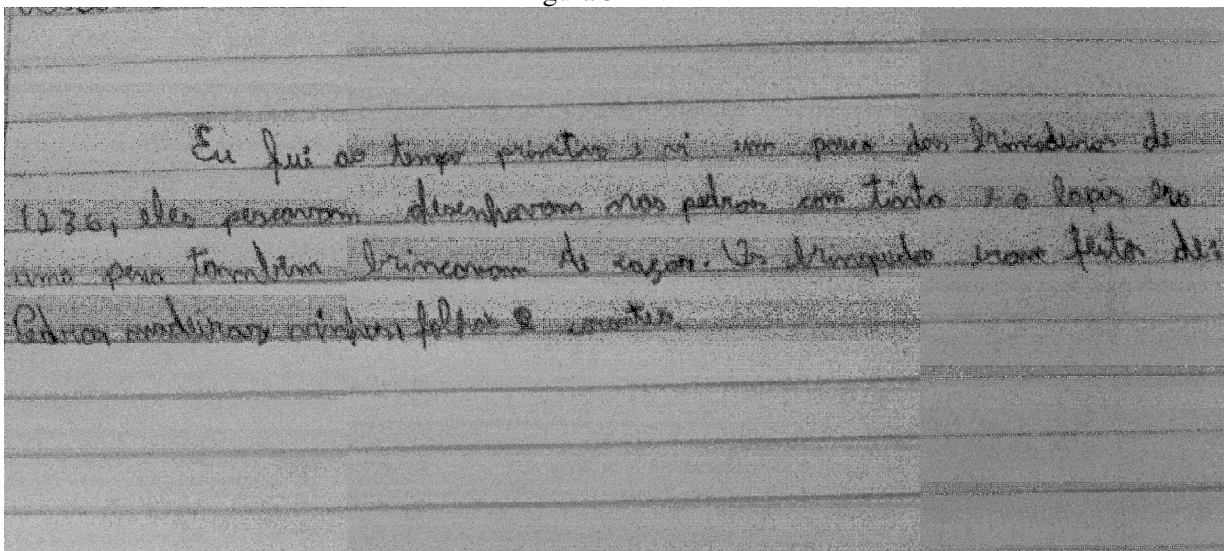 Eu fui ao tempo primitivo e vi um pouco das brincadeiras de
1236, eles pescavam desenhavam nas pedras com tinta e o lapis era
uma pena também brincavam de caçar. Os brinquedos eram feitos de:
Pedras madeiras folhas e